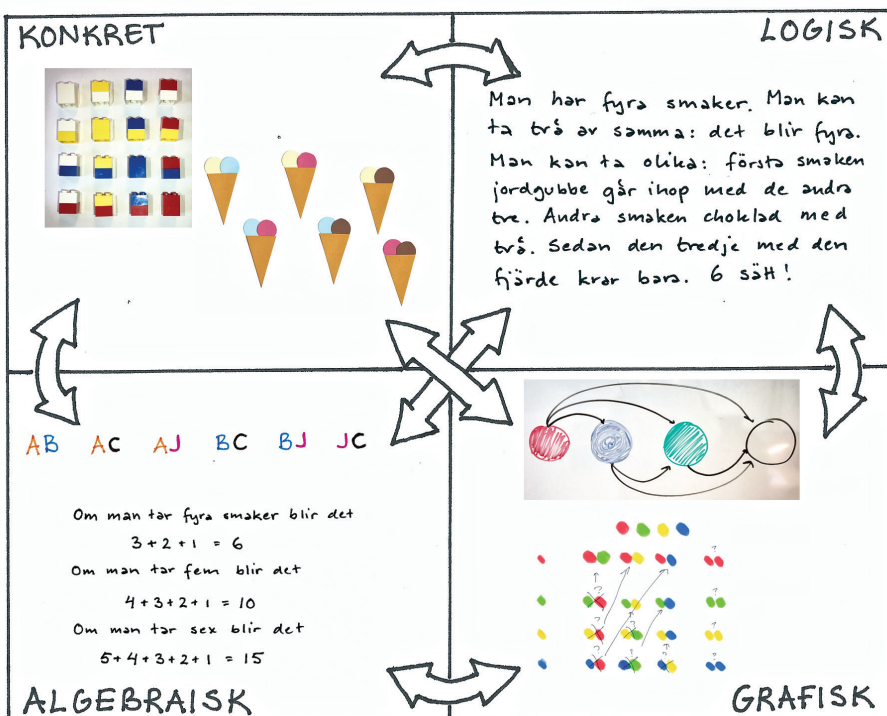 KONKRET
LOGISK
Man har fyra smaker. Man kan
ta två av samma: det blir fyra.
Man kan ta olika: första smaken
jordgubbe går ihop med de andra
tre. Andra smaken choklad med
två. Sedan den tredje med den
fjärde kvar bara. 6 sätt!
AB AC AJ BC BJ JC
Om man tar fyra smaker blir det
3+2+1 = 6
Om man tar fem blir det
4+3+2+1 = 10
Om man tar sex blir det
5+4+3+2+1 = 15
ALGEBRAISK
GRAFISK